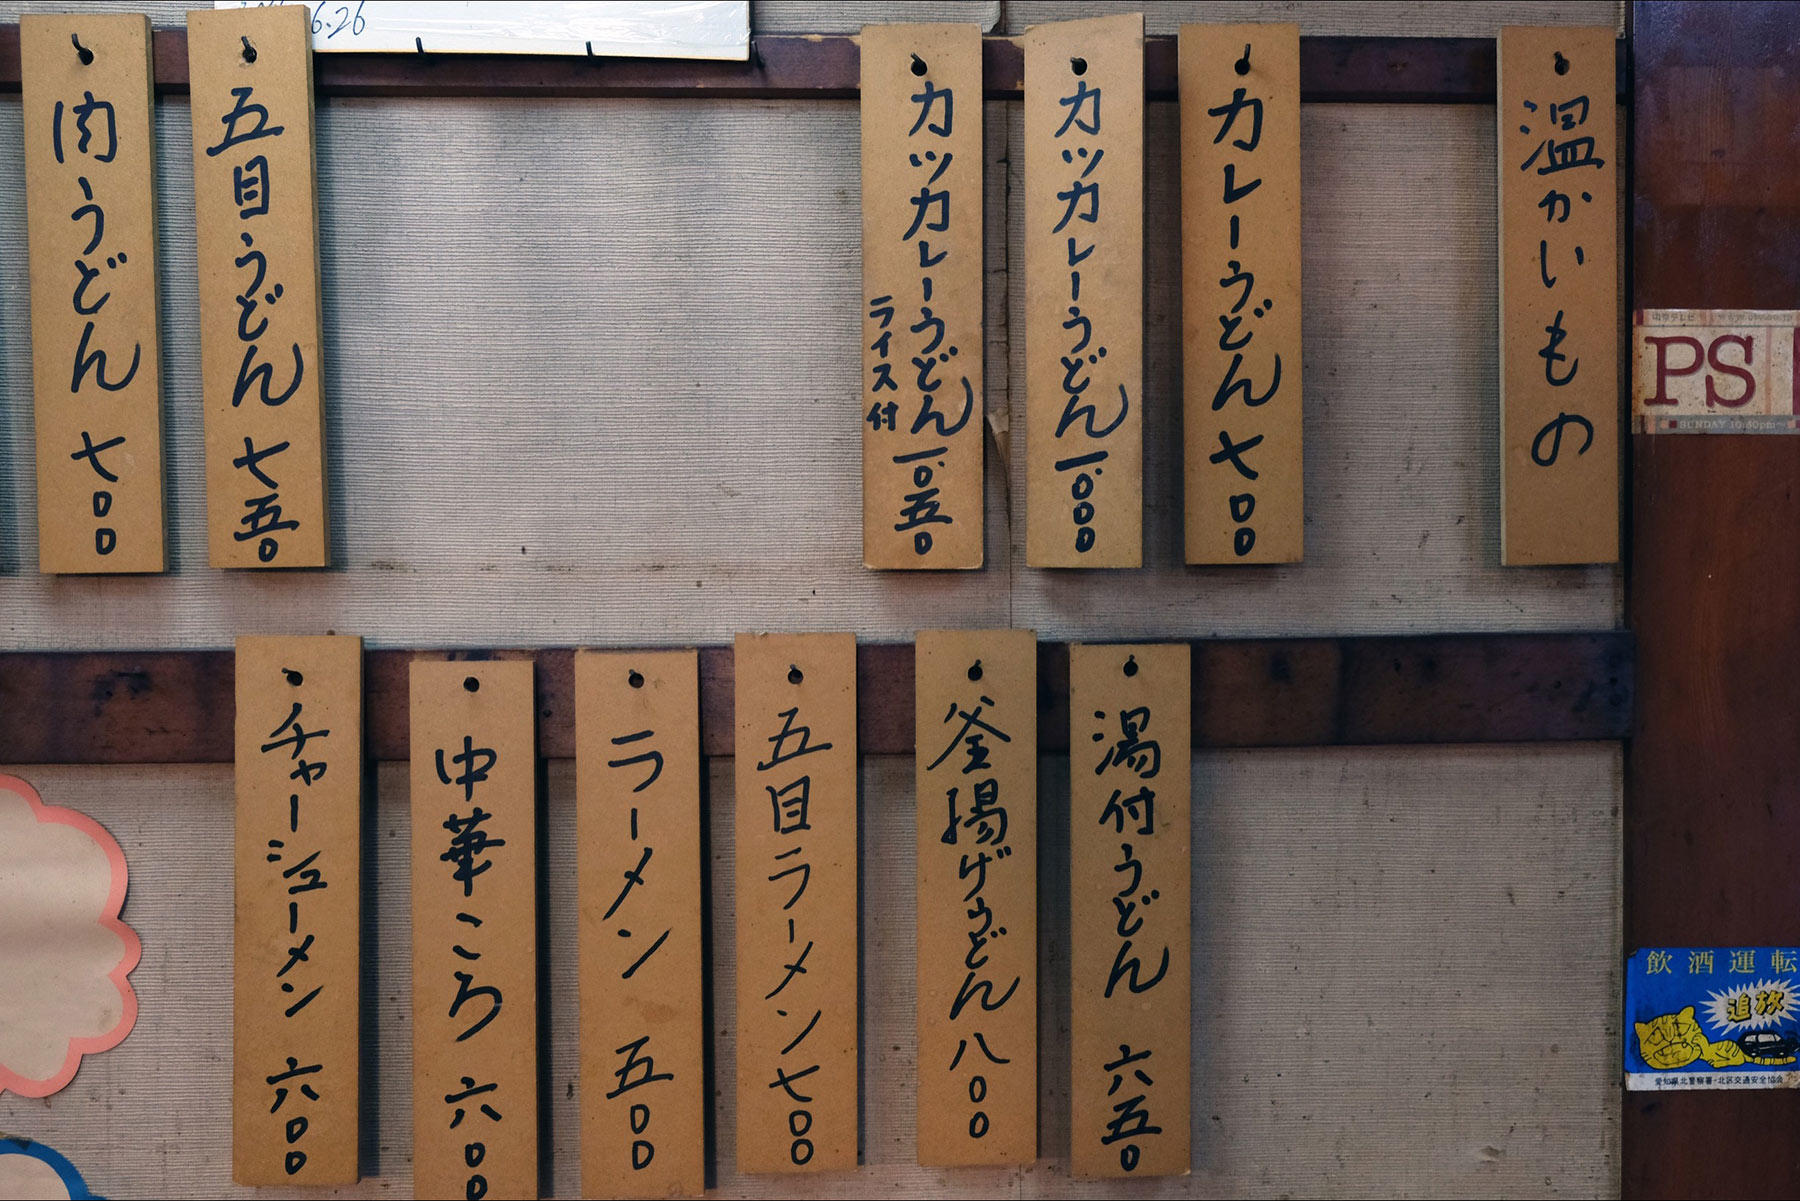 温かいもの
カレーうどん 七〇〇
カツカレーうどん 一、〇〇〇
カツカレーうどん 一、〇五〇
ライス付
五目うどん 七五〇
肉うどん 七〇〇
湯付うどん 六五〇
釜揚げうどん 八〇〇
五目ラーメン 七〇〇
ラーメン 五〇〇
中華ころ 六〇〇
チャーシューメン 六〇〇
6.26
PS
SUNDAY 10:30pm~
飲酒運転
追放
愛知県北警察署・北区交通安全協会